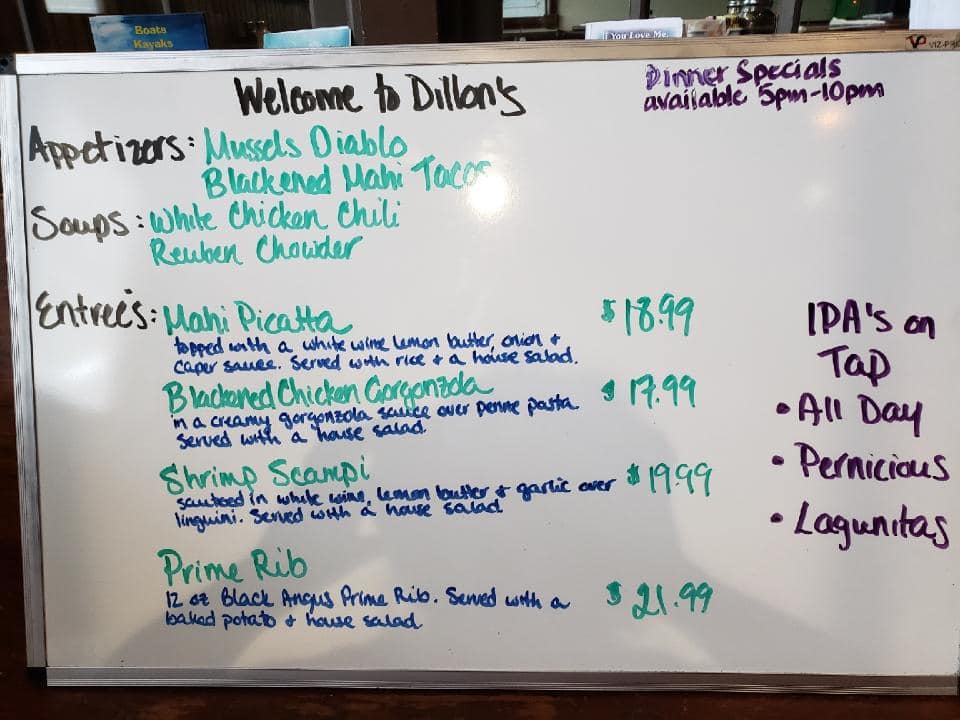 Boats
Kayaks
You Love Me.
VP
Welcome to Dillon's
Dinner Specials
available 5pm-10pm
Appetizers: Mussels Diablo
Blackened Mahi Tacos
Soups: White Chicken Chili
Reuben Chowder
Entreé's: Mahi Picatta $18.99
topped with a white wine lemon butter, onion +
caper sauce. Served with rice + a house salad.
Blackened Chicken Gorgonzola $17.99
in a creamy gorgonzola sauce over penne pasta
Served with a house salad
Shrimp Scampi $19.99
sauteed in white wine, lemon butter + garlic over
linguini. Served with a house salad
Prime Rib
12 oz Black Angus Prime Rib. Served with a $21.99
baked potato + house salad
IPA's on
Tap
• All Day
• Pernicious
• Lagunitas